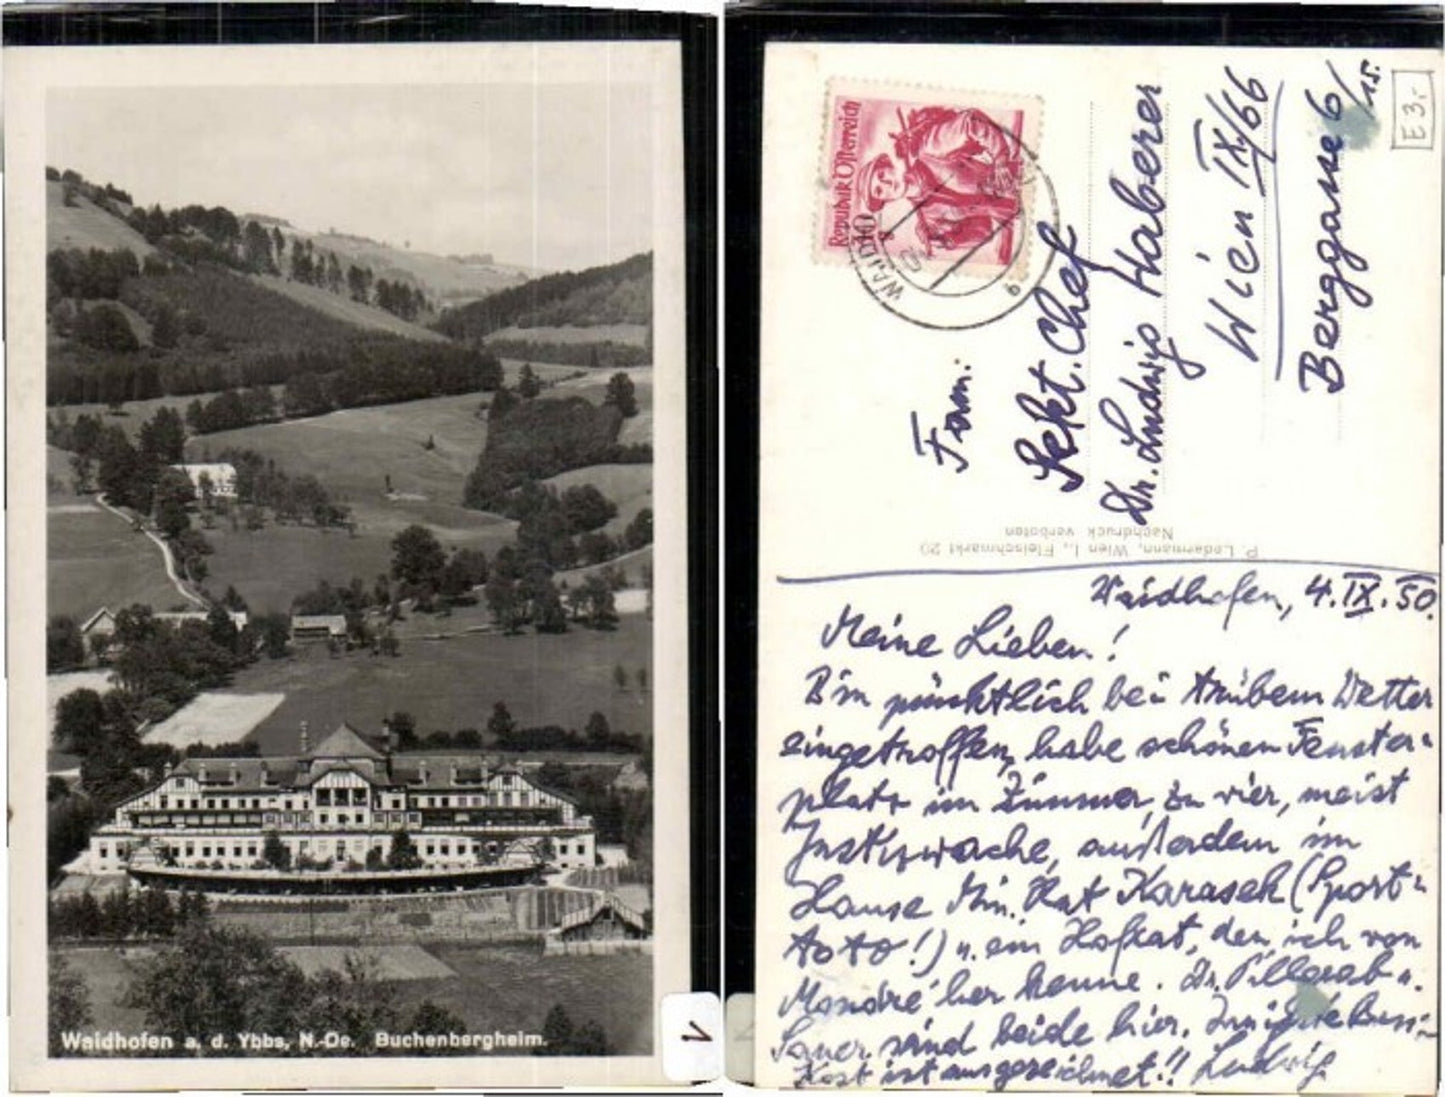 Waidhofen a. d. Ybbs, N.-Oe. Buchenbergheim.
1
Republik Österreich
E 3.-
Fam:
Sekt. Chef
Dr. Ludwig Haberer
Wien IX/66
Berggasse 6/15.
P. Ledermann, Wien I., Fleischmarkt 20
Nachdruck verboten
Waidhofen, 4.IX.50.
Meine Lieben!
Bin pünktlich bei trübem Wetter
eingetroffen, habe schönen Fenster-
platz im Zimmer, zu vier, meist
Justizwache, außerdem im
Hause Min. Rat Karasek (Sport-
toto!) u. ein Hofrat, den ich von
her kenne. Dr. u.
sind beide hier.
Kost ist ausgezeichnet!! Ludwig